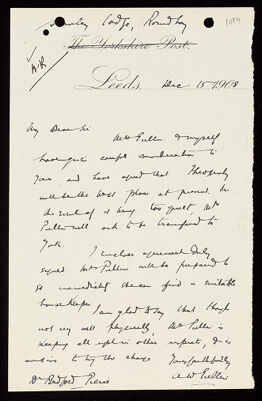 Lodge, Roundhay
1084
The Yorkshire Post.
Leeds, Dec 15 1908
My Dear Sir
Mrs Pullen & myself
have given careful consideration to
yours and have agreed that
will be the best place at present. In
the event of it being too quiet, Mr
Pullen will ask to be transferred to
York.
I enclose agreement duly
signed. Mrs Pullen will be prepared to
so
housekeeper.
I am glad to say that though
not very well physically, Mr Pullen is
keeping all right in other respects, & is
anxious to try the change
Yours faithfully
Dr Bedford Pierce
A W Pullen